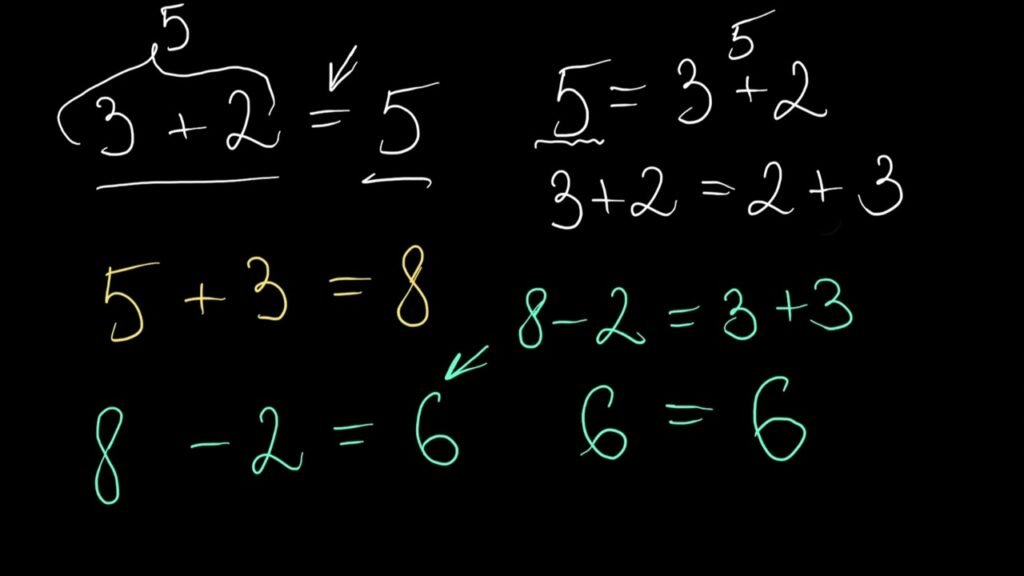 5
3 + 2 = 5
5 + 3 = 8
8 - 2 = 6
5
5 = 3 + 2
3 + 2 = 2 + 3
8 - 2 = 3 + 3
6 = 6